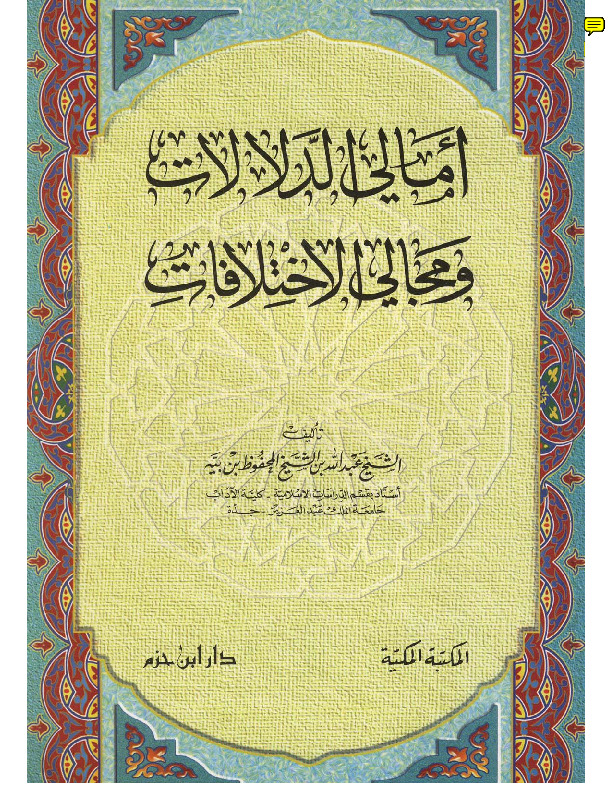 أَمَالي الدَّلالات
وَمَجَالي الاخْتِلافاتِ
تأليف
الشَّيخ عَبْد اللّه بن الشَّيخ المحفُوظ بن بَيَّه
أستاذ بقسم الدراسات الإسلامية - كلية الآداب
جامعة الملك عبد العزيز - جدة
المكتبة المكية
دار ابن حزم